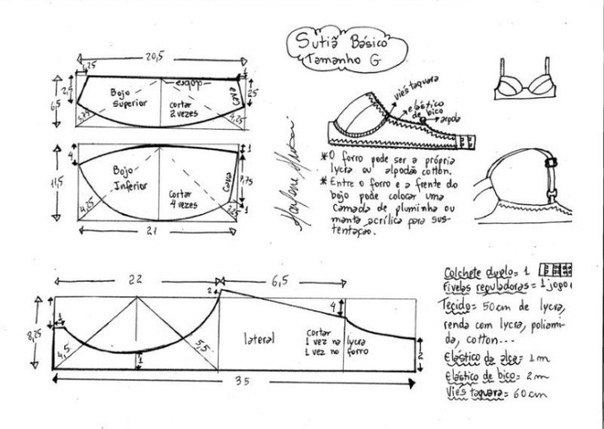 Sutiã Básico
Tamanho G
20,5
1,25
2,5
6,5
Bojo
Superior
decote
cortar
2 vezes
cava
3,75
4,25
Bojo
Inferior
Cortar
4 vezes
cava
4
11,5
7,75
1
4,25
21
viés taquara
elástico
de bico
* O forro pode ser a própria
lycra ou algodão cotton.
* Entre o forro e a frente do
bojo pode colocar uma
camada de pluminha ou
manta acrílica para sus-
tentação.
22
6,5
2
4
1
8,25
4,5
5,5
1
lateral
Cortar
1 vez na lycra
1 vez no forro
2
35
Colchete duplo = 1
Fivelas reguladoras = 1 jogo
Tecido = 50 cm de lycra,
renda com lycra, poliami-
da, cotton...
Elástico da alça = 1 m
Elástico de bico = 2 m
Viés taquara = 60 cm